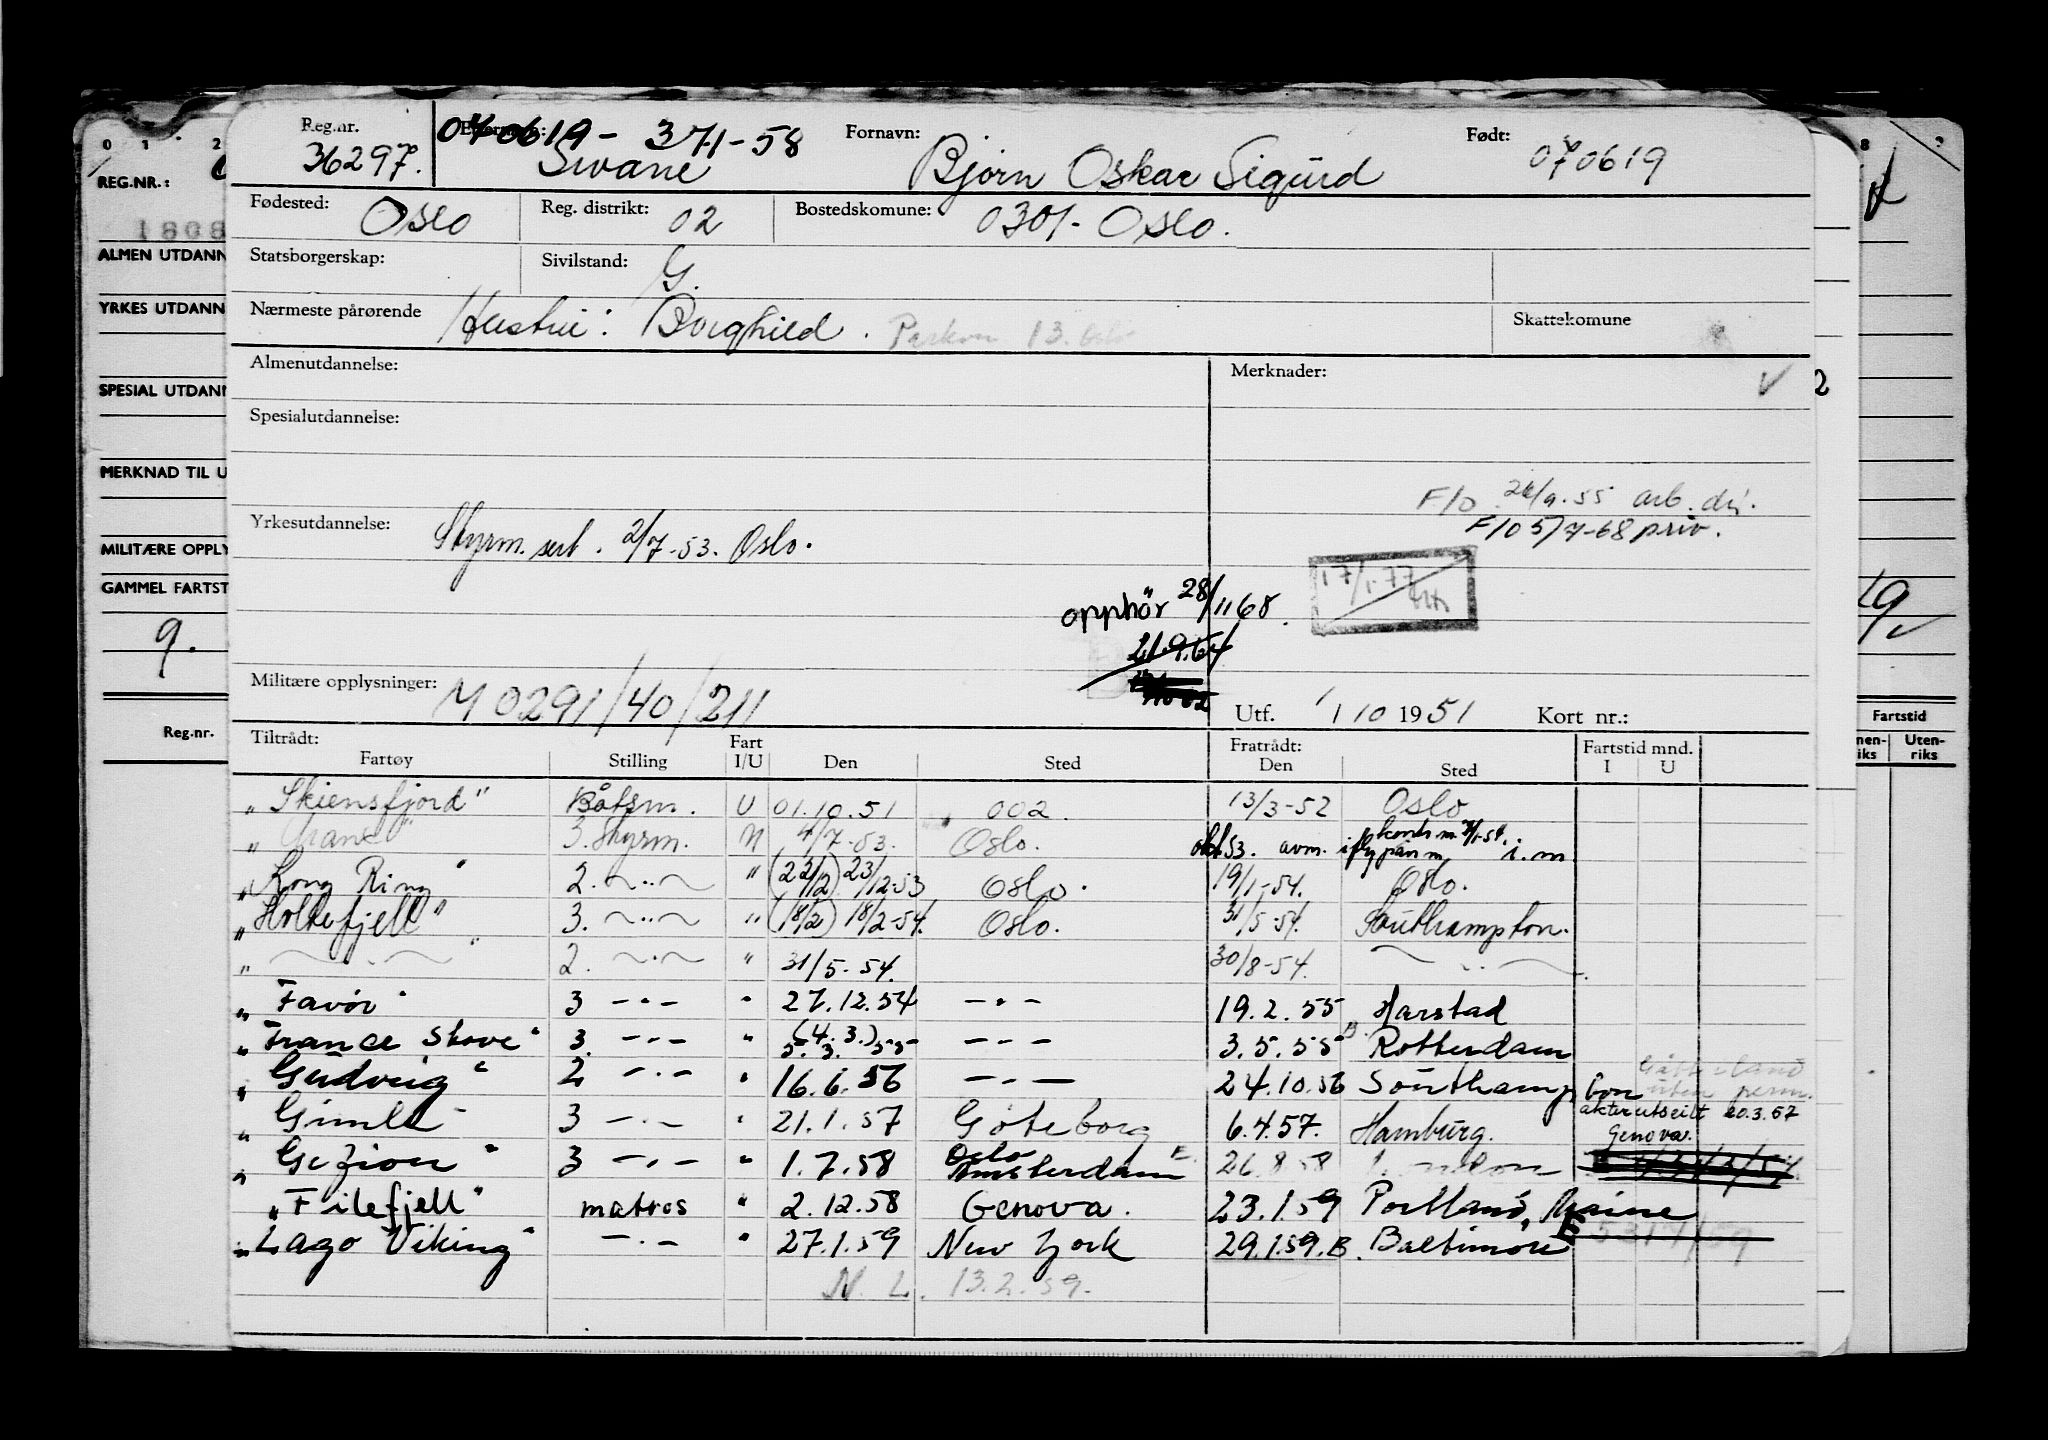 Reg.nr. 36297. Etternavn: 070619- 371-58 Swane Fornavn: Bjørn Oskar Sigurd Født: 070619
0 1 2
REG.NR.:
1808
Fødested: Oslo Reg. distrikt: 02 Bostedskomune: 0301- Oslo.
ALMEN UTDANN
Statsborgerskap: Sivilstand: G.
YRKES UTDANN
Nærmeste pårørende Hustru: Borghild. 13. Oslo Skattekomune
Almenutdannelse: Merknader: ✓
SPESIAL UTDANN
Spesialutdannelse:
MERKNAD TIL U
F/O 26/9-55 arb. dir.
Yrkesutdannelse: Styrm. sert. 2/7-53. Oslo. F/O 5/7-68 priv.
MILITÆRE OPPLY
17/1-77
GAMMEL FARTST
opphör 28/11 68.
9.
21.9.64
Militære opplysninger: M 0291/40/211
Utf. 1/10 1951 Kort nr.:
Reg.nr.
Fartstid
Uten-riks
Tiltrådt: Fartøy Stilling Fart I/U Den Sted Fratrådt: Den Sted Fartstid mnd. I U
"Skiensfjord" Båtsm. U 01.10.51 002. 13/3-52 Oslo
3. Styrm. 4/7-53. Oslo. okt 53. avm. i.m
"Kong Ring" 2. ~..~ " (22/12) 23/12-53 Oslo. 19/1-54. Oslo.
"Holtefjell" 3. ~..~ " (18/2) 18/2-54. Oslo. 31/5-54. Southampton.
" ~ . ~ " 2. ~.~ " 31/5-54. 30/8-54. ~ .. ~
" Favör " 3 -.- " 27.12.54 -.- 19.2.55 Harstad
"France Stove" 3. -.- " (4.3.) 5.3.55 --- 3.5.55 B. Rotterdam
"Gudveig" 2 -.- " 16.6.56 -.- 24.10.56 Southampton uten perm.
"Gimle" 3 -.- " 21.1.57 Göteborg 6.4.57. Hamburg. akterutseilt 20.3.57 Genova.
"Gezion" 3 -.- " 1.7.58 Oslo Amsterdam E. 26.8.58
"Filefjell" matros " 2.12.58 Genova. 23.1.59 Portland, Maine
"Lago Viking" -.- " 27.1.59 New York 29.1.59. B. Baltimore E 5317/59
N. L. 13.2.59.